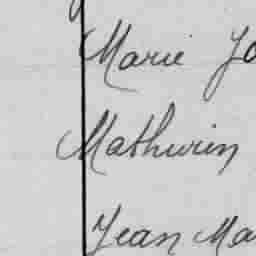 Marie Jo
Mathurin
Jean Ma